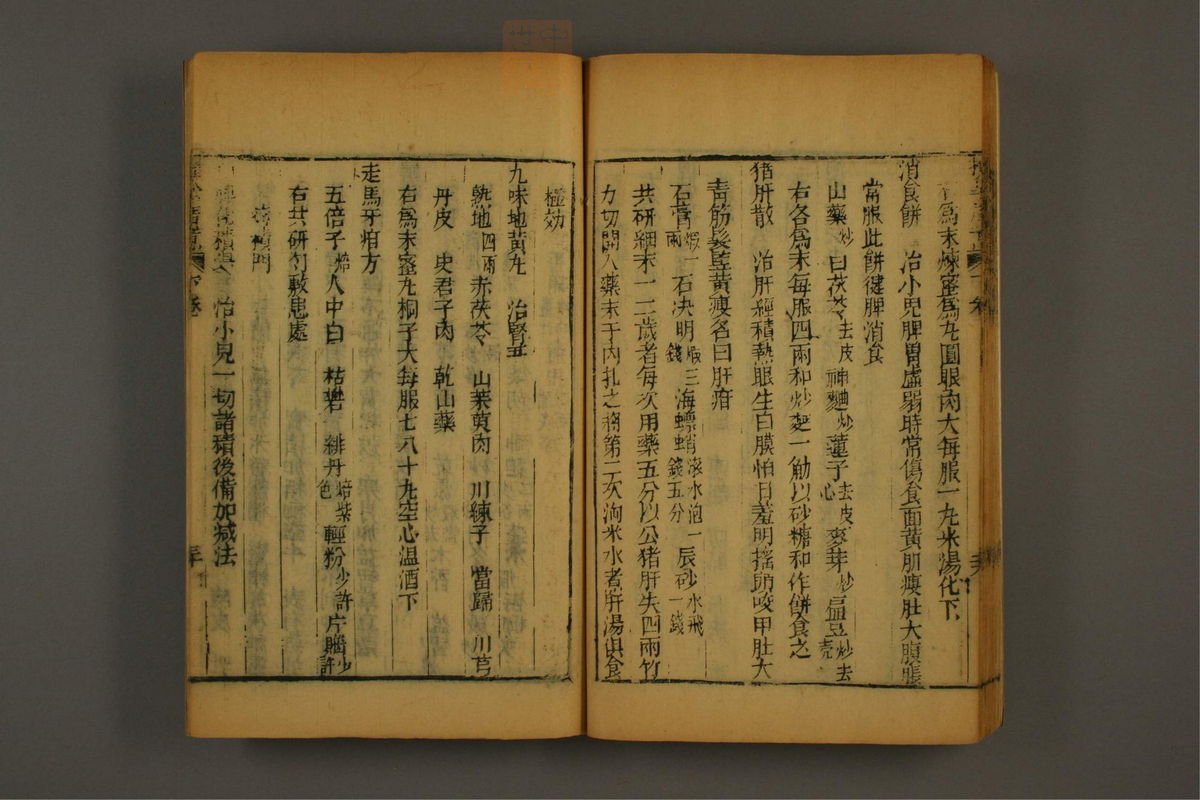 為末煉蜜為丸圓眼肉大每服一丸米湯化下
消食餅　治小兒脾胃虛弱時常傷食面黃肌瘦肚大腹脹
常服此餅健脾消食
山藥炒　白茯苓去皮　神麯炒　蓮子去皮心　麥芽炒　豆炒去壳
右各為末每服四兩和炒麵一觔以砂糖和作餅食之
猪肝散　治肝經積熱眼生白膜怕日羞明搖頭咬甲肚大
青筋髮竪黃瘦名曰肝疳
石膏煆一兩　石決明煆三錢　海螵蛸滾水泡一錢五分　辰砂水飛一錢
共研細末一二歲者每次用藥五分以公猪肝尖四兩竹
刀切開入藥末于内扎之將第二次泔米水煮肝湯俱食
極効
九味地黃丸　治腎
熟地四兩　赤茯苓　山茱萸肉　川練子　當歸　川芎
丹皮　史君子肉　乾山藥
右為末蜜丸桐子大每服七八十丸空心温酒下
走馬牙疳方
五倍子焙　人中白　枯礬　緋丹焙紫色　輕粉少許　片腦少許
右共研勻敷患處
積門
積　治小兒一切諸積後備加減法